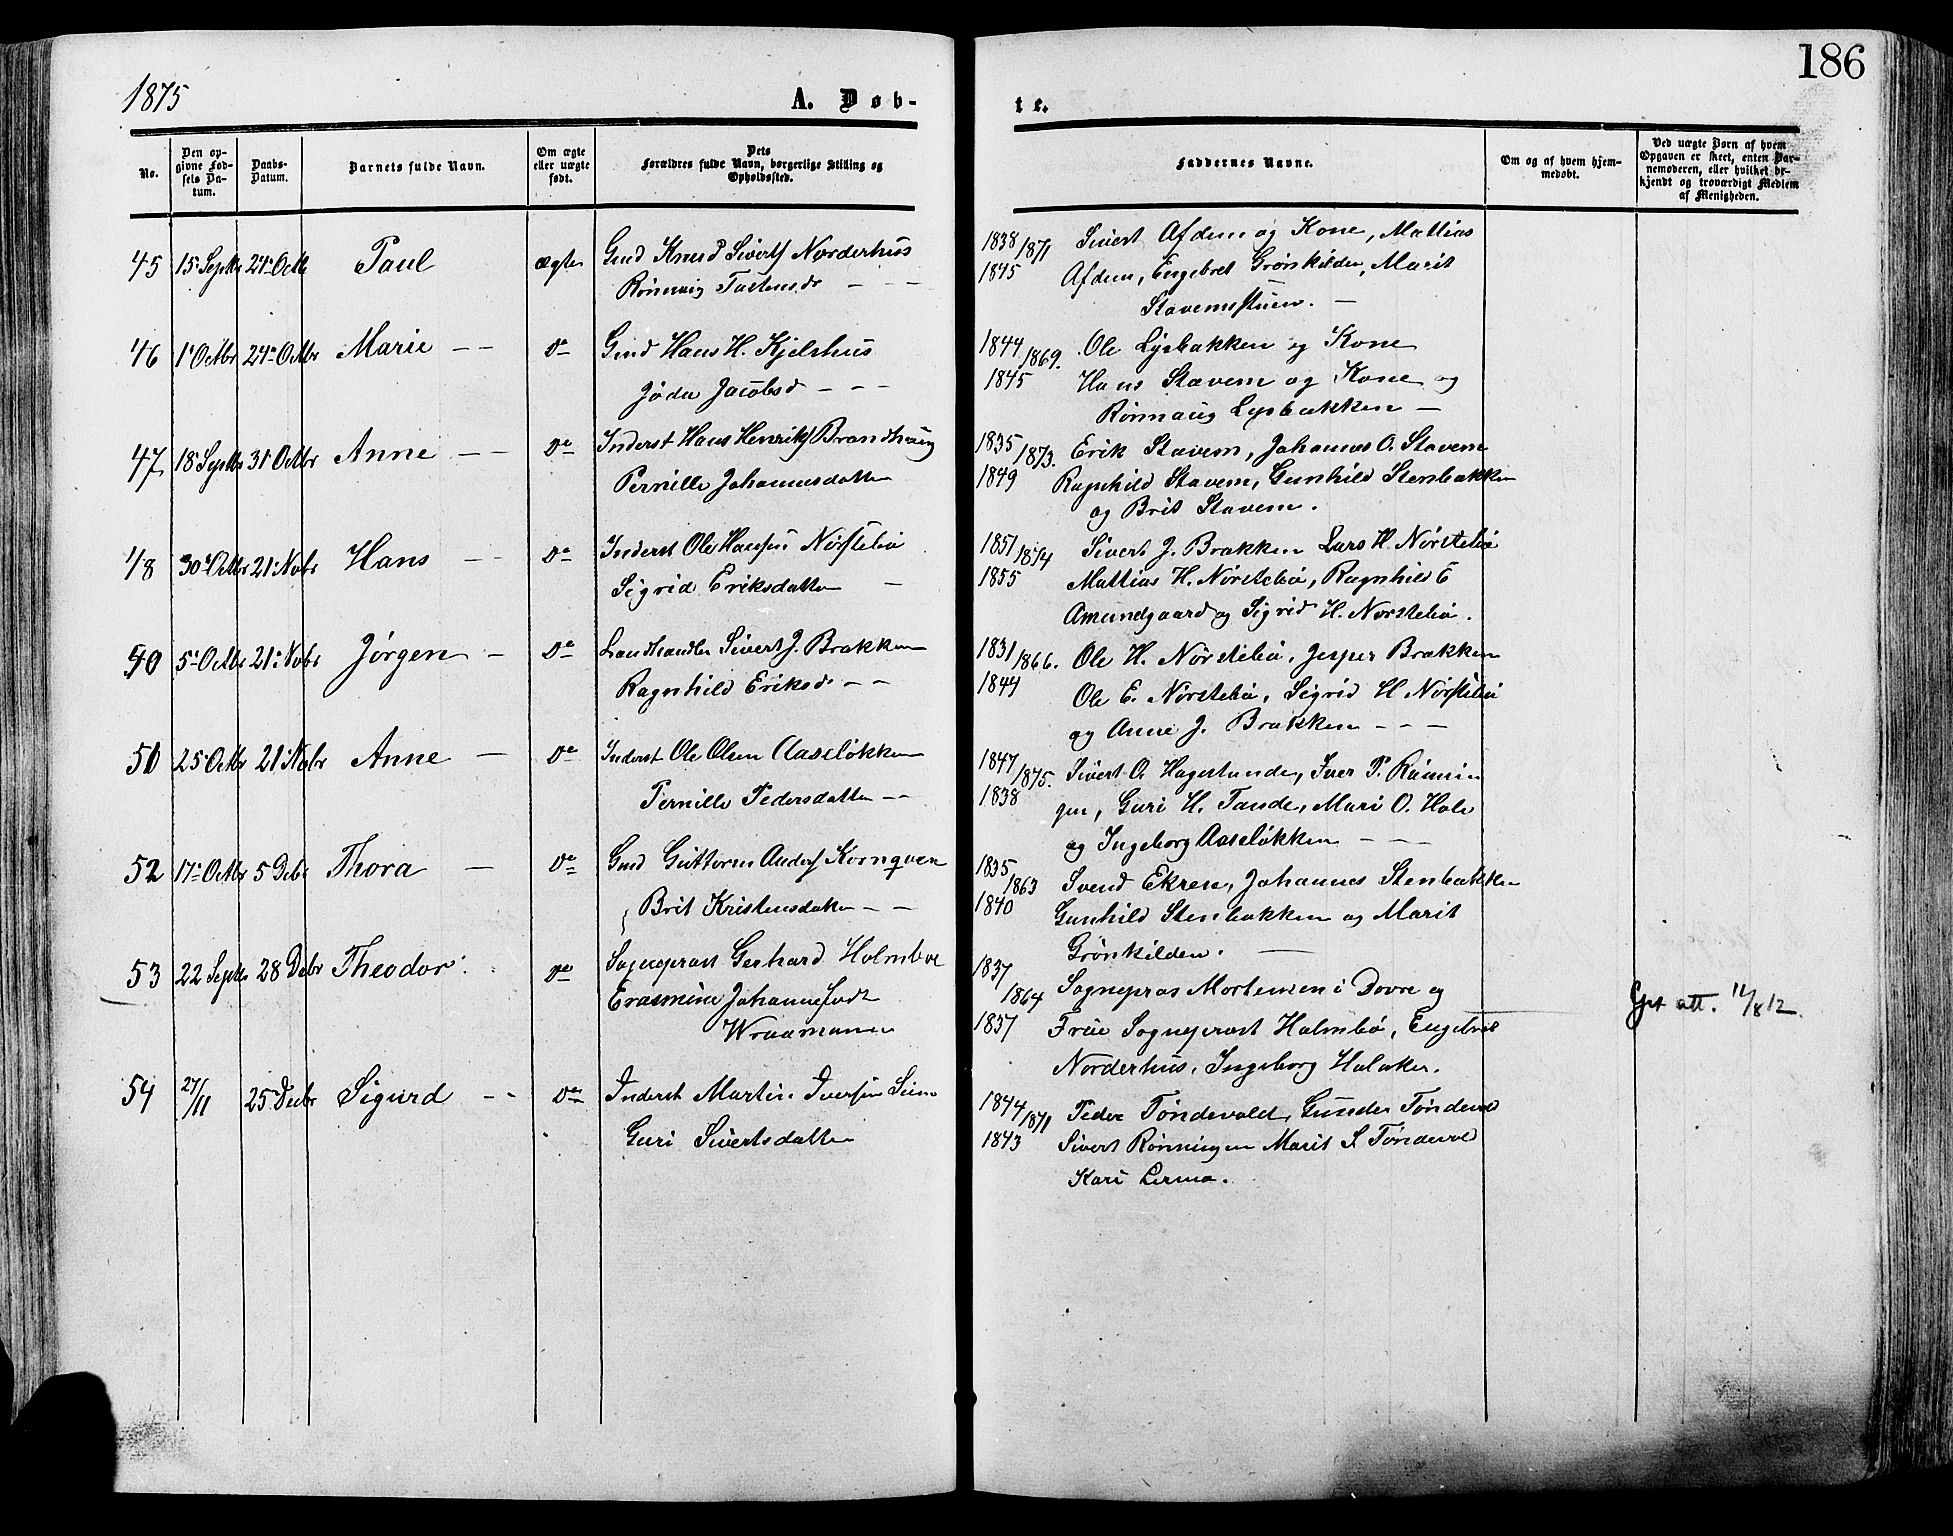 186
1875
A. Døb-
te.
No.
Den op-
givne Fød-
sels Da-
tum.
Daabs-
Datum.
Barnets fulde Navn.
Om ægte
eller uægte
født.
Dets
Forældres fulde Navn, borgerlige Stilling og
Opholdssted.
Faddernes Navne.
Om og af hvem hjem-
medøbt.
Ved uægte Børn af hvem
Opgaven er skeet, enten Bar-
nemoderen, eller hvilket be-
kjendt og troværdigt Medlem
af Menigheden.
45 15 Septbr 24 Octbr Paul ægte Gmd Knud Siverts Norderhus
Rønnaug Tostensdr - - -
1838 1871 Sivert Afdem og Kone, Mattias
1845 Afdem, Engebret Grønskilden, Marit
Stavemsstuen. -
46 1 Octbr 24 Octbr Marie - - do Gmd Hans H. Kjelshus
Jøda Jacobsd - - -
1844 1869. Ole Lysbakken og Kone
1845 Hans Stavem og Kone og
Rønnaug Lysbakken -
47 18 Septbr 31 Octbr Anne - - do Inderst Hans Henriks Brandhaug
Pernille Johannesdatter
1835 1873. Erik Stavem, Johannes O. Stavem
1849 Ragnhild Stavem, Gunhild Stenbakken
og Brit Stavem.
48 30 Octbr 21 Nobr Hans - - do Inderst Ole Hansen Nørstebø
Sigrid Eriksdatter -
1851 1874 Sivert J. Brækken Lars H. Nørstebø
1855 Mattias H. Nørstebø, Ragnhild E
Amundgaard og Sigrid H. Nørstebø.
5 Octbr 21 Nobr Jørgen - do Landhandler Sivert J. Brækken
Ragnhild Eriksd - -
1831 1866. Ole H. Nørstebø, Jesper Brækken
1844 Ole E. Nørstebø, Sigrid H Nørstebø
og Anne J. Brækken - - -
50 25 Octbr 21 Nobr Anne - do Inderst Ole Olsen Aaseløkken
Pernille Pedersdatter - -
1847 1875. Sivert O. Hagestunde, Iver P. Rønnin
1838 gen, Guri H. Tande, Mari O. Hole
og Ingeborg Aaseløkken - - -
52 17 Octbr 5 Debr Thora - do Gmd Guttorm Anders Kornqven
Brit Kristensdatter - -
1835 1863 Svend Ekren, Johannes Stenbakken
1840 Gunhild Stenbakken og Marit
Grønskilden. -
53 22 Septbr 28 Debr Theodor do Sogneprest Gerhard Holmboe
Erasmine Johanne født
Wraamann
1837 1864 Sognepres Mortensen i Dovre og
1837 Frue Sogneprest Holmbo, Engebret
Norderhus, Ingeborg Holaker.
Gjst att. 11/8 12.
54 27/11 25 Decbr Sigurd - - do Inderst Martin Iversen Siem
Guri Sivertsdatter
1844 1871 Peder Tøndevold, Gunder Tøndevol
1843 Sivert Rønningen Marit S. Tøndevol
Kari Lermo.